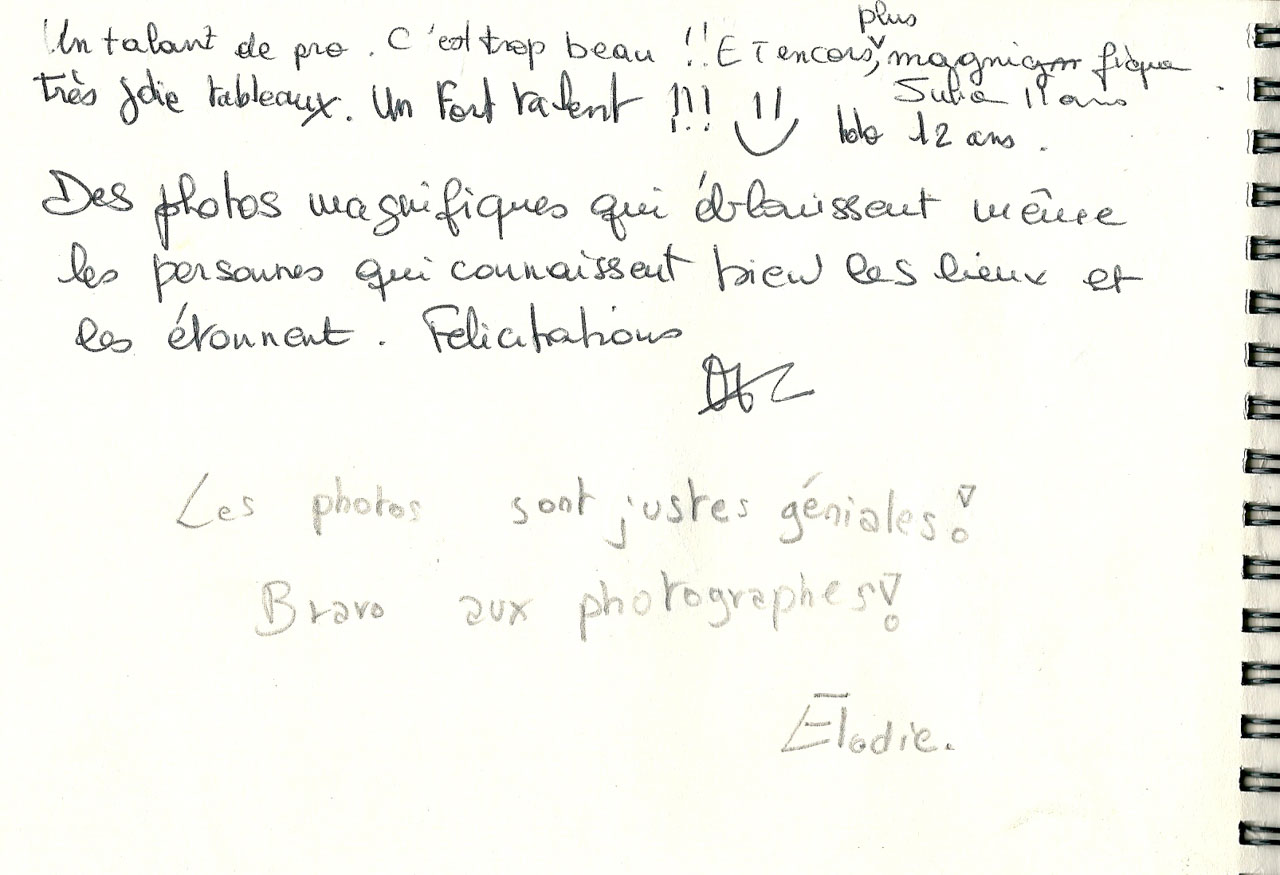 Un talant de pro. C'est trop beau !! ET encors, plus magnifique
Julia 11 ans
très jolie tableaux. Un Fort talent !!!
lolo 12 ans.
Des photos magnifiques qui éblouissent même
les personnes qui connaissent bien les lieux et
les étonnent. Felicitations
Les photos sont justes géniales!
Bravo aux photographes!
Elodie.